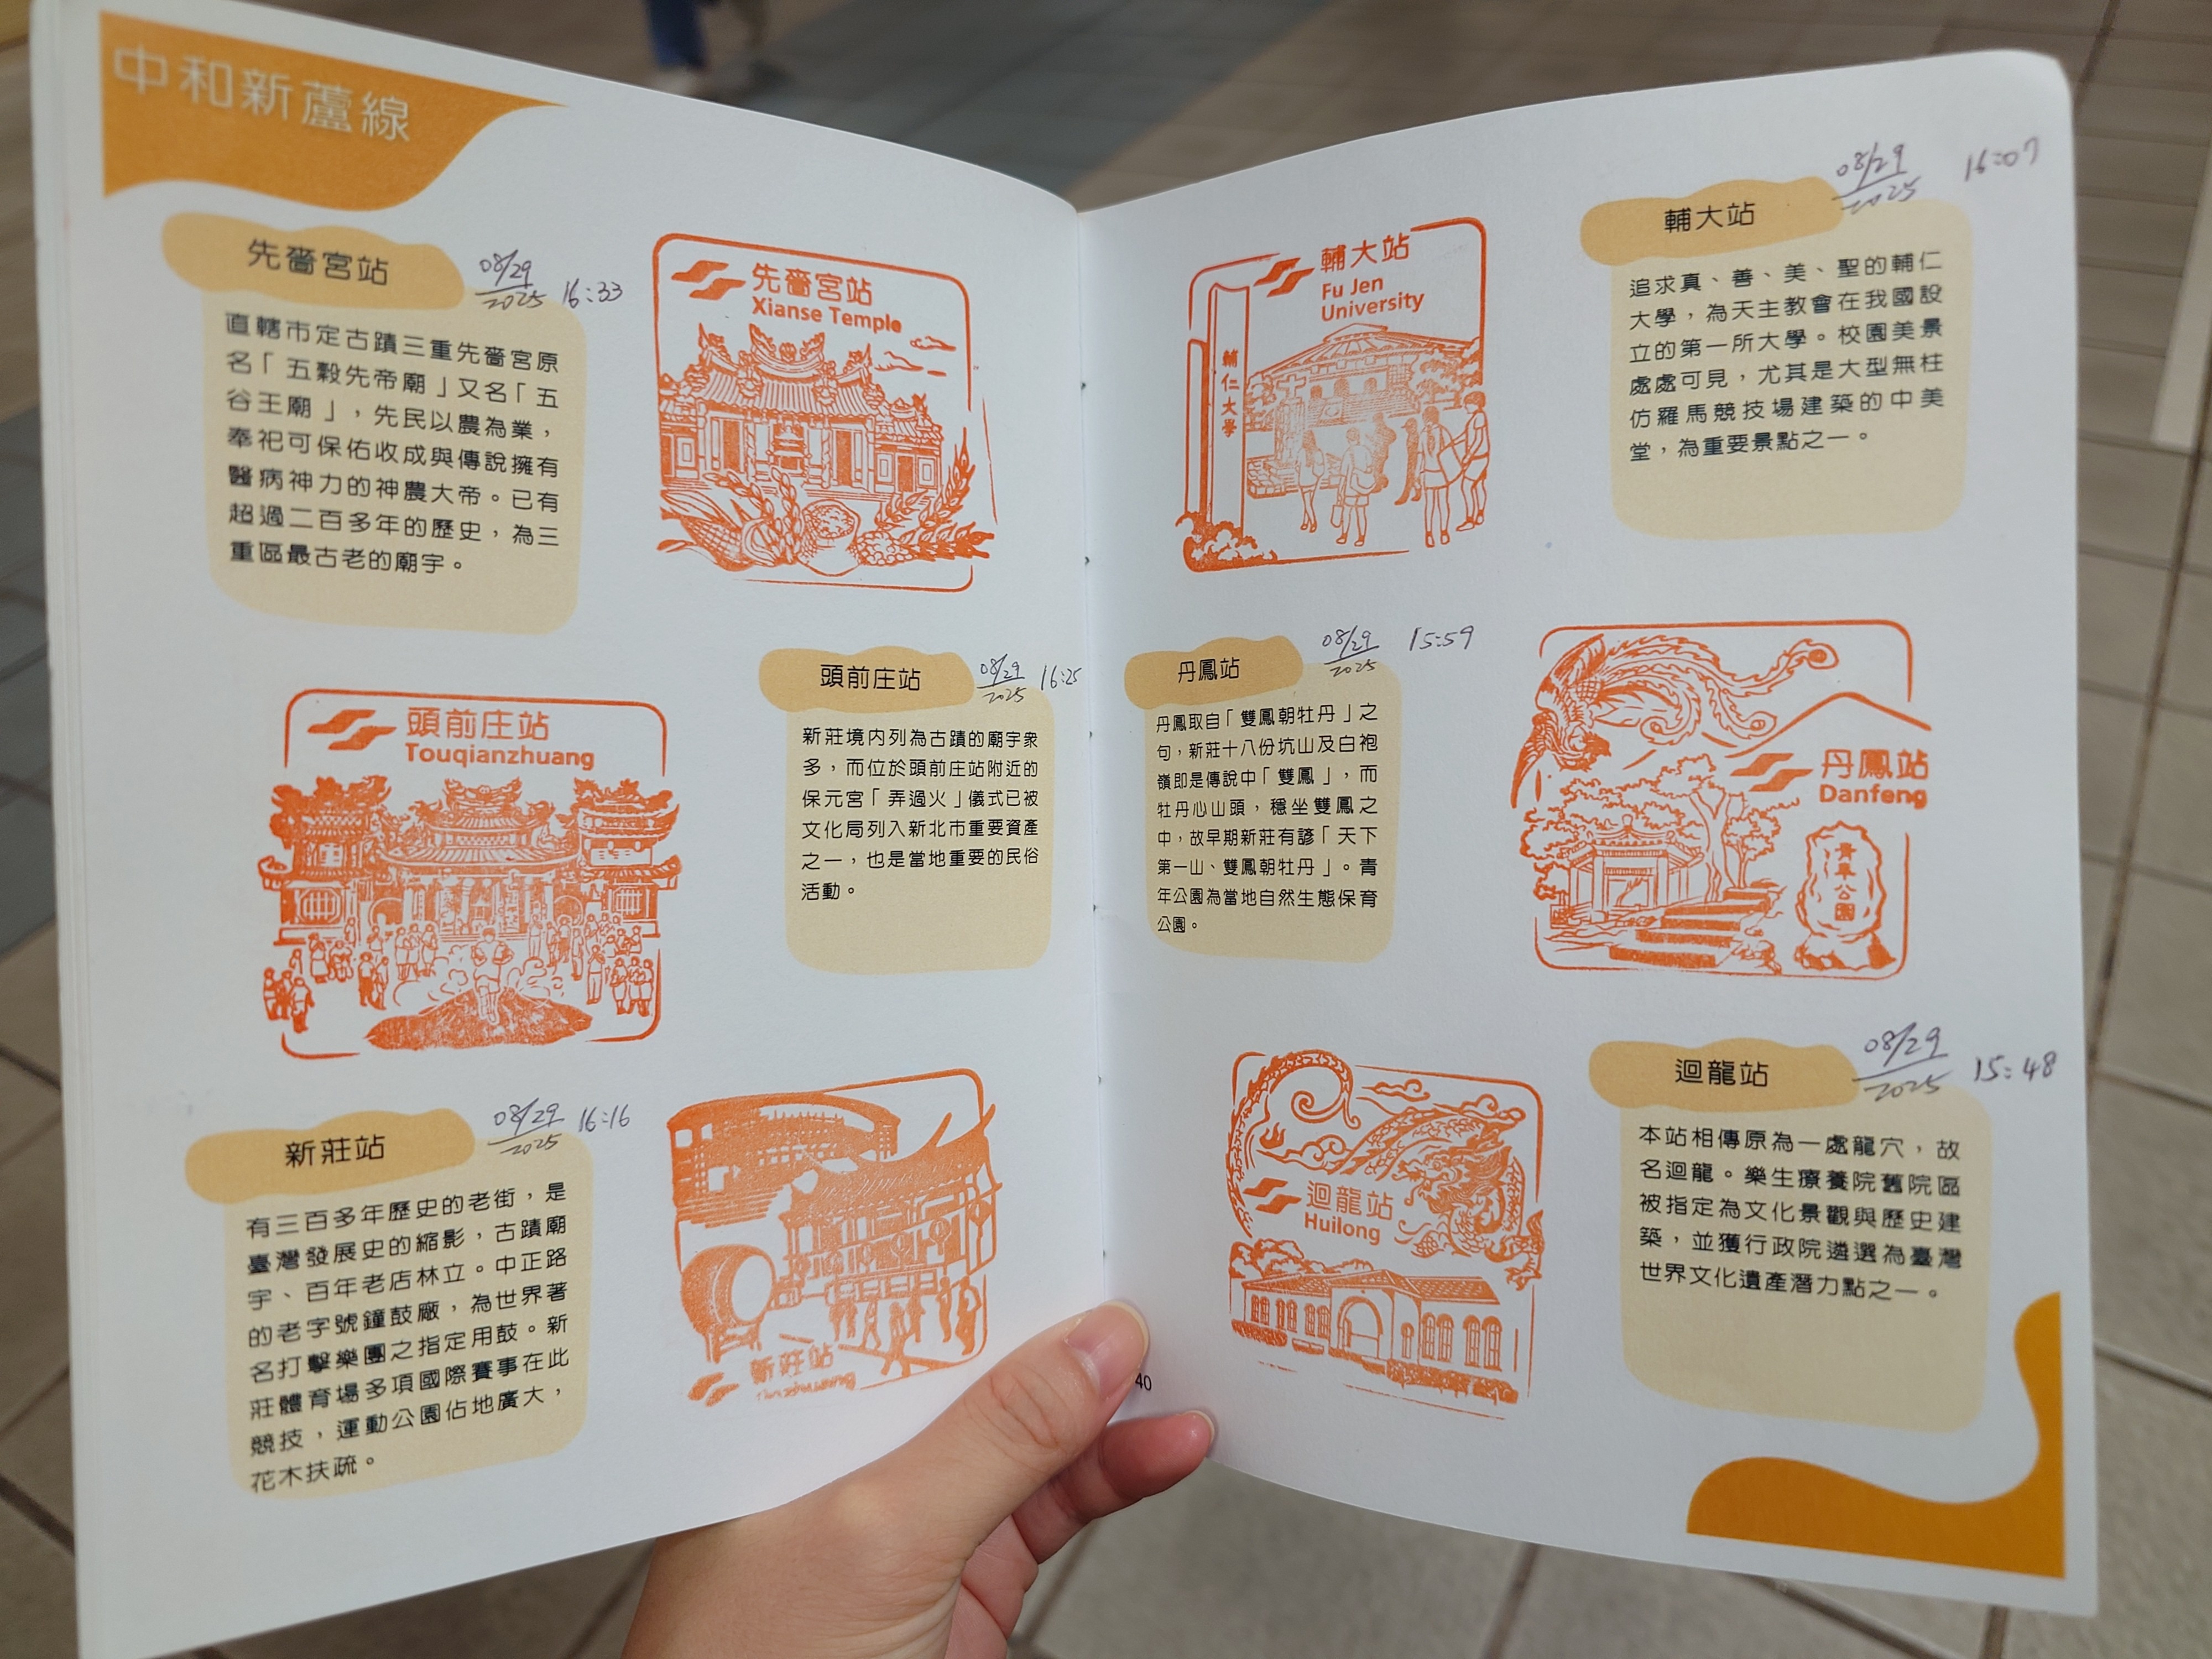 中和新蘆線
先嗇宮站
08/29
2025
16:33
直轄市定古蹟三重先嗇宮原
名「五穀先帝廟」又名「五
谷王廟」，先民以農為業，
奉祀可保佑收成與傳說擁有
醫病神力的神農大帝。已有
超過二百多年的歷史，為三
重區最古老的廟宇。
先嗇宮站
Xianse Temple
頭前庄站
Touqianzhuang
頭前庄站
08/29
2025
16:25
新莊境內列為古蹟的廟宇衆
多，而位於頭前庄站附近的
保元宮「弄過火」儀式已被
文化局列入新北市重要資產
之一，也是當地重要的民俗
活動。
新莊站
08/29
2025
16:16
有三百多年歷史的老街，是
臺灣發展史的縮影，古蹟廟
宇、百年老店林立。中正路
的老字號鐘鼓廠，為世界著
名打擊樂團之指定用鼓。新
莊體育場多項國際賽事在此
競技，運動公園佔地廣大，
花木扶疏。
新莊站
輔大站
Fu Jen
University
輔仁大學
輔大站
08/29
2025
16:07
追求真、善、美、聖的輔仁
大學，為天主教會在我國設
立的第一所大學。校園美景
處處可見，尤其是大型無柱
仿羅馬競技場建築的中美
堂，為重要景點之一。
丹鳳站
08/29
2025
15:59
丹鳳取自「雙鳳朝牡丹」之
句，新莊十八份坑山及白袍
嶺即是傳說中「雙鳳」，而
牡丹心山頭，穩坐雙鳳之
中，故早期新莊有諺「天下
第一山、雙鳳朝牡丹」。青
年公園為當地自然生態保育
公園。
丹鳳站
Danfeng
青年公園
迴龍站
Huilong
迴龍站
08/29
2025
15:48
本站相傳原為一處龍穴，故
名迴龍。樂生療養院舊院區
被指定為文化景觀與歷史建
築，並獲行政院遴選為臺灣
世界文化遺產潛力點之一。
40